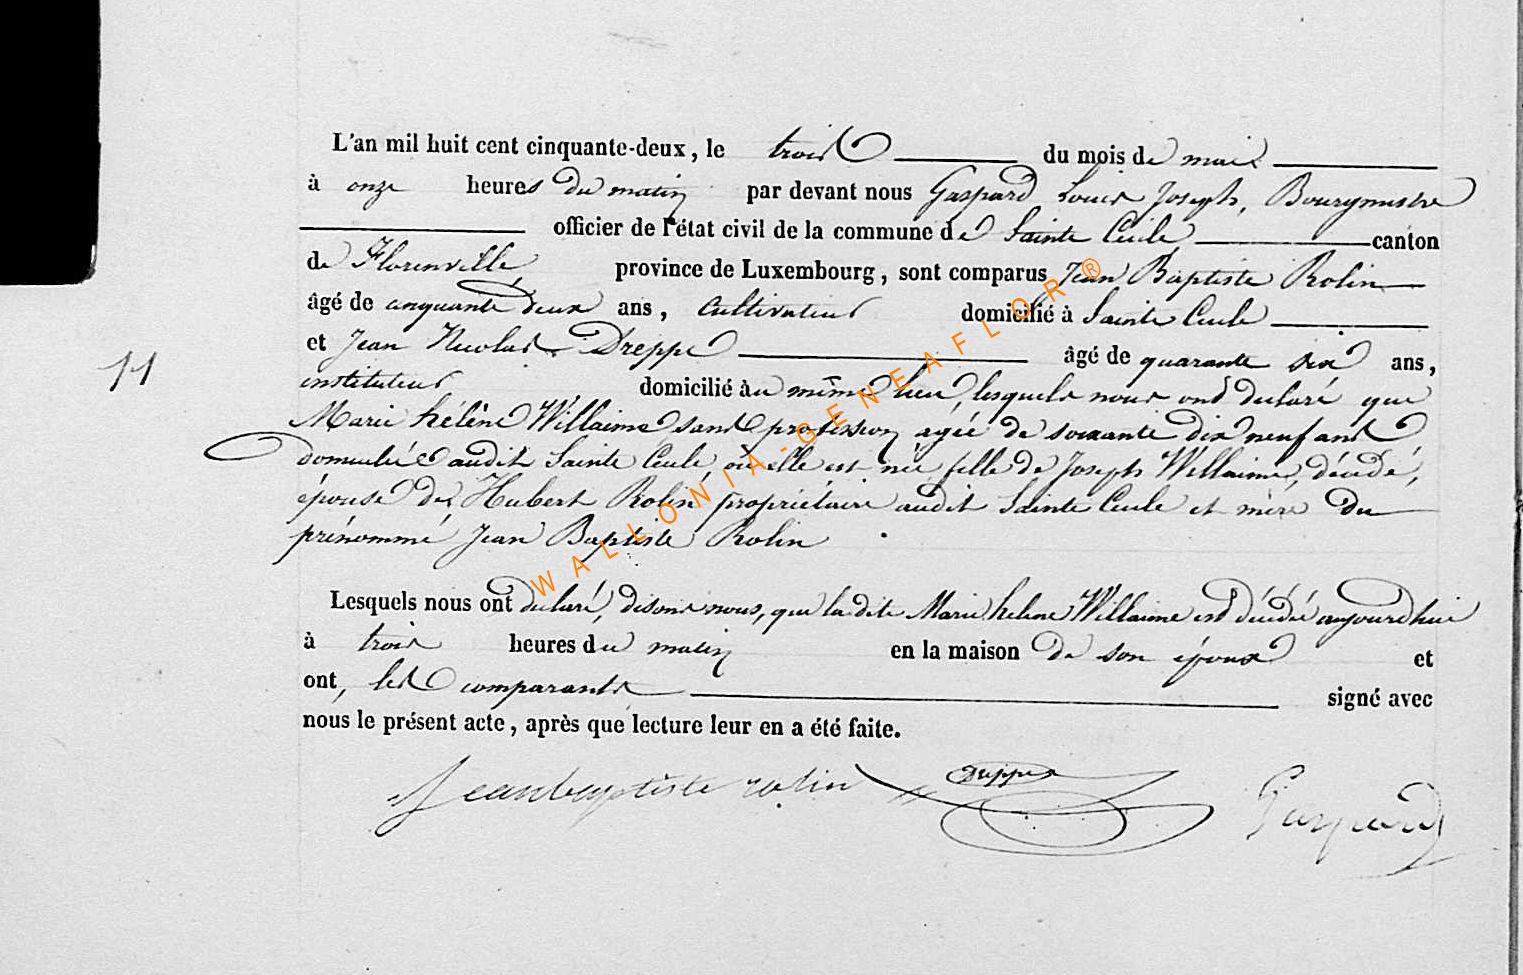 L'an mil huit cent cinquante-deux, le trois du mois de mai
à onze heures du matin par devant nous Gaspard Louis Joseph, Bourgmestre
officier de l'état civil de la commune de Sainte Cécile canton
de Florenville province de Luxembourg, sont comparus Jean Baptiste Rolin
âgé de cinquante deux ans, cultivateur domicilié à Sainte Cécile
et Jean Nicolas Dreppe âgé de quarante six ans,
11
instituteur domicilié au même lieu, lesquels nous ont déclaré que
Marie hélène Willaime sans profession agée de soixante dix neuf ans
domiciliée audit Sainte Cécile, où elle est née fille de Joseph Willaime, décédé,
épouse de Hubert Rolin propriétaire audit Sainte Cécile et mère du
prénommé Jean Baptiste Rolin
Lesquels nous ont déclaré, disons nous, que la dite Marie hélène Willaime est décédée aujourd'hui
à trois heures du matin en la maison de son époux et
ont, les comparants signé avec
nous le présent acte, après que lecture leur en a été faite.
Jeanbaptiste rolin Dreppe Gaspard
WALLONIA-GENEAFLOR®